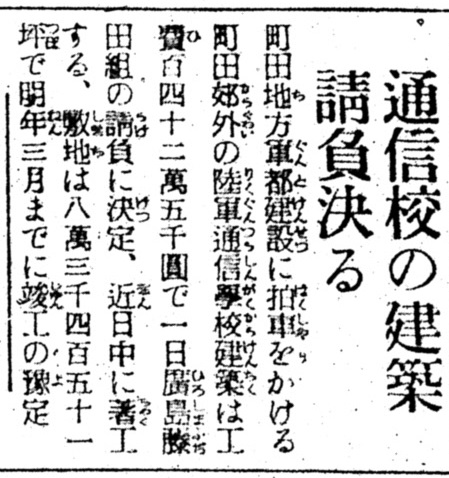 通信校の建築
請負決る
町田地方軍都建設に拍車をかける
町田郊外の陸軍通信學校建築は工
費百四十二萬五千圓で一日廣島藤
田組の請負に決定、近日中に著工
する、敷地は八萬三千四百五十一
坪で明年三月までに竣工の豫定